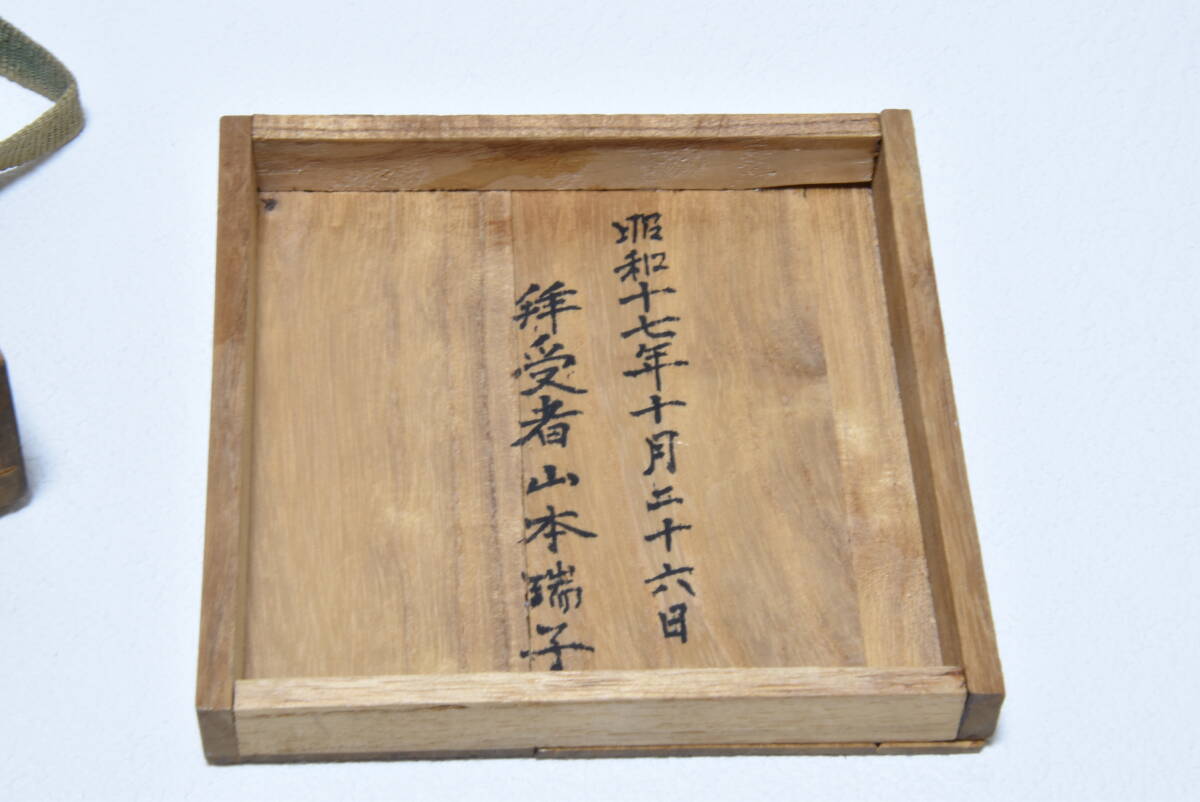 昭和十七年十月二十六日
拝受者山本瑞子